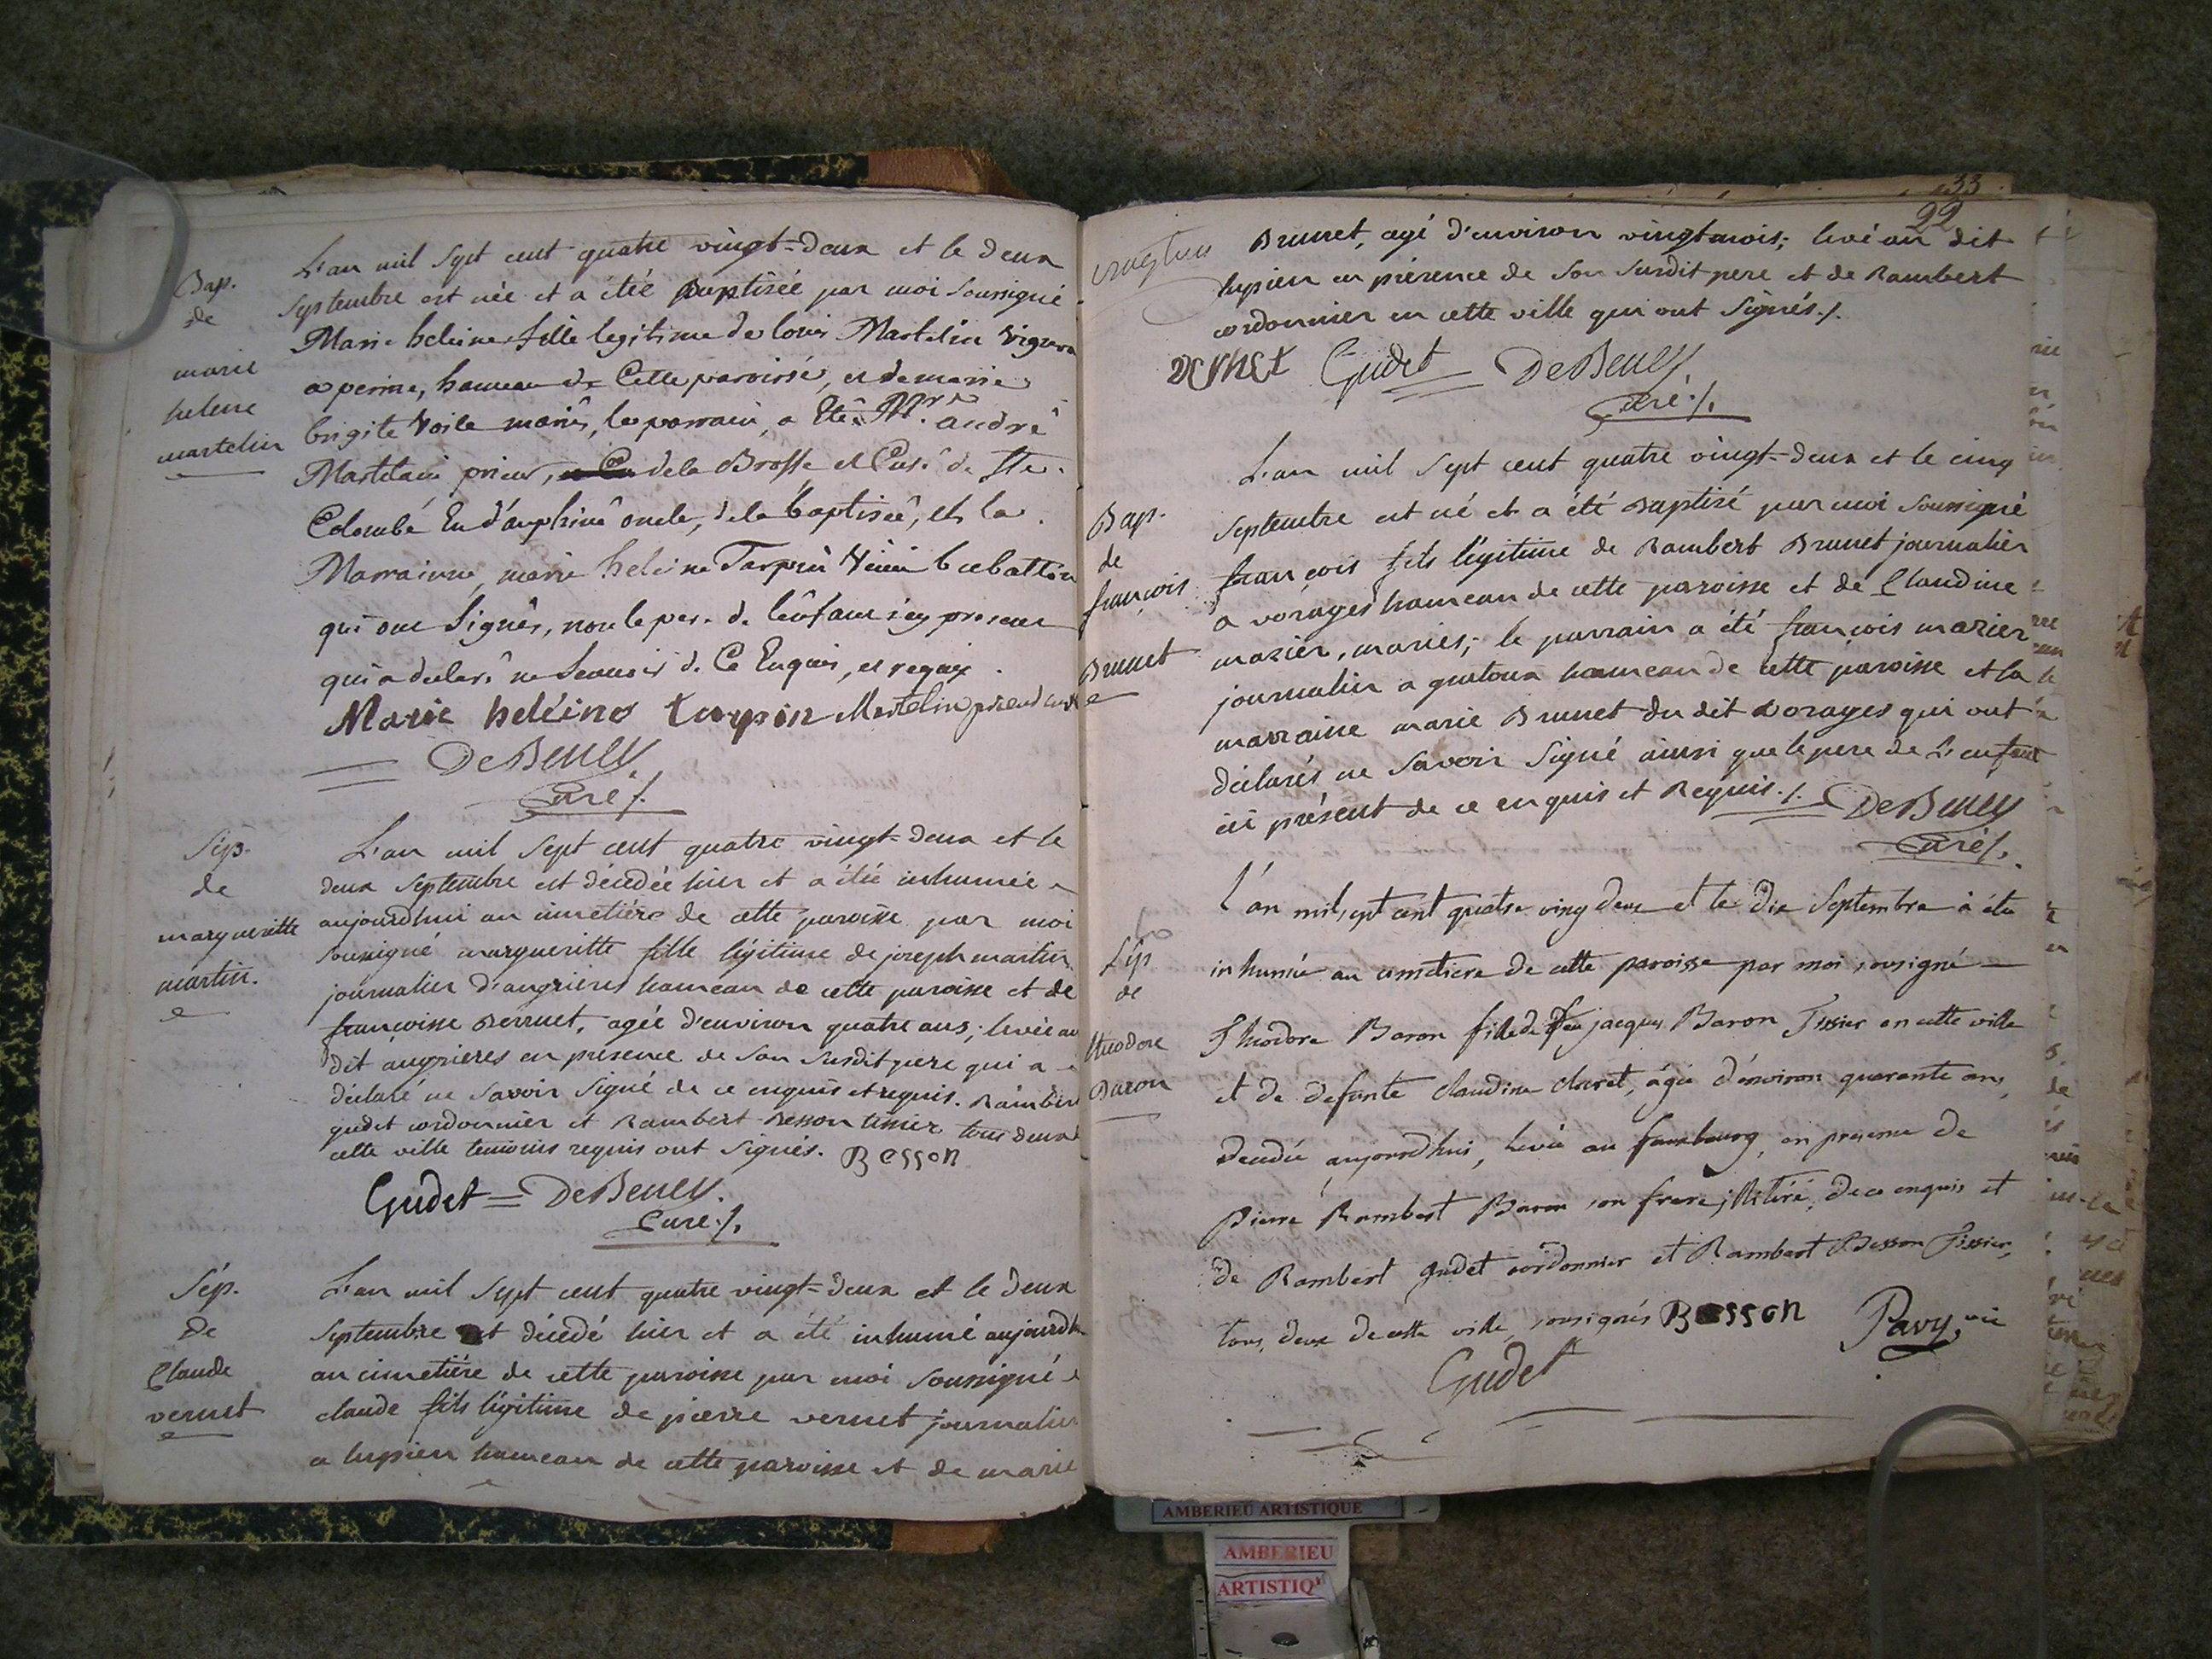 Bap.
de
marie
helene
martelin
L'an mil sept cent quatre vingt-deux et le deux
septembre est née et a étéé baptisée par moi soussigné
Marie heleine fille legitime de louis Martelin vigneron
a perine, hameau de Cette paroisse, et de marie
brigite Voile mariés, le parrain, a Eté Mre andré
Martelain prieur, de la Brosse et Curé de Ste.
Colombe En d'auphiné oncle, de la baptiseé, et la
Marrainne, marie heleine Tarpin
qui ont Signés, non le pere de l'enfant icy present
qui a declaré ne Scavoir de Ce Enquis, et requis.
Marie heleine tarpin Martelin prieur curé
DeBeney
Curé ./.
Sép.
de
margueritte
martin.
L'an mil sept cent quatre vingt-deux et le
deux septembre est décedée hier et a étéé inhumée
aujourdhui au cimetiére de cette paroisse par moi
soussigné margueritte fille légitime de joseph martin
journalier d'augrieres hameau de cette paroisse et de
françoise Berruet, agée d'environ quatre ans; levée au
dit augrieres en presence de son susdit pere qui a
déclaré ne savoir signé de ce enquis et requis. Rambert
gudet cordonnier et Rambert Besson tissier tous deux de
cette ville temoins requis ont signés. Besson
Gudet = DeBeney.
Curé ./.
Sép.
de
Claude
vernet
L'an mil sept cent quatre vingt-deux et le deux
septembre est décédé hier et a été inhumé aujourdh
au cimetiére de cette paroisse par moi soussigné
claude fils légitime de pierre vernet journalier
a lupien hameau de cette paroisse et de marie
33
22
Brunet, agé d'environ vingt mois; levé au dit
lupien en présence de son susdit pere et de Rambert
cordonnier en cette ville qui ont signés ./.
vernet Gudet DeBeney
Curé ./.
Bap.
de
françois
Brunet
L'an mil sept cent quatre vingt-deux et le cinq
septembre est né et a été baptisé par moi soussigné
françois fils légitime de Rambert Brunet journalier
a vorages hameau de cette paroisse et de Claudine
mazier, mariés; le parrain a été françois mazier
journalier a gratoux hameau de cette paroisse et la
marraine marie Brunet du dit vorages qui ont
déclarés ne savoir signé ainsi que le pere de l'enfant
ici présent de ce enquis et Requis ./. DeBeney
Curé ./.
Sép
de
théodore
Baron
L'an mil sept cent quatre ving deux et le dix septembre à éte
inhumée au cimetiere de cette paroisse par moi sousigné
Théodore Baron fille de feu jacques Baron Tissier en cette ville
et de defunte claudine claret, âgée d'environ quarante ans,
decedée aujourdhui, levée au fauxbourg, en presence de
Pierre Rambert Baron son frere, illitéré, de ce enquis et
de Rambert gudet cordonnier et Rambert Besson Tissier,
tous deux de cette ville sousignés Besson Pavy, vic
Gudet
AMBERIEU ARTISTIQUE
AMBERIEU
ARTISTIQ